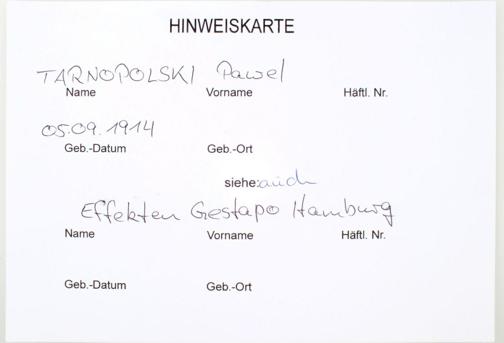 HINWEISKARTE
TARNOPOLSKI Pawel
Name Vorname Häftl. Nr.
05.09.1914
Geb.-Datum Geb.-Ort
siehe: auch
Effekten Gestapo Hamburg
Name Vorname Häftl. Nr.
Geb.-Datum Geb.-Ort